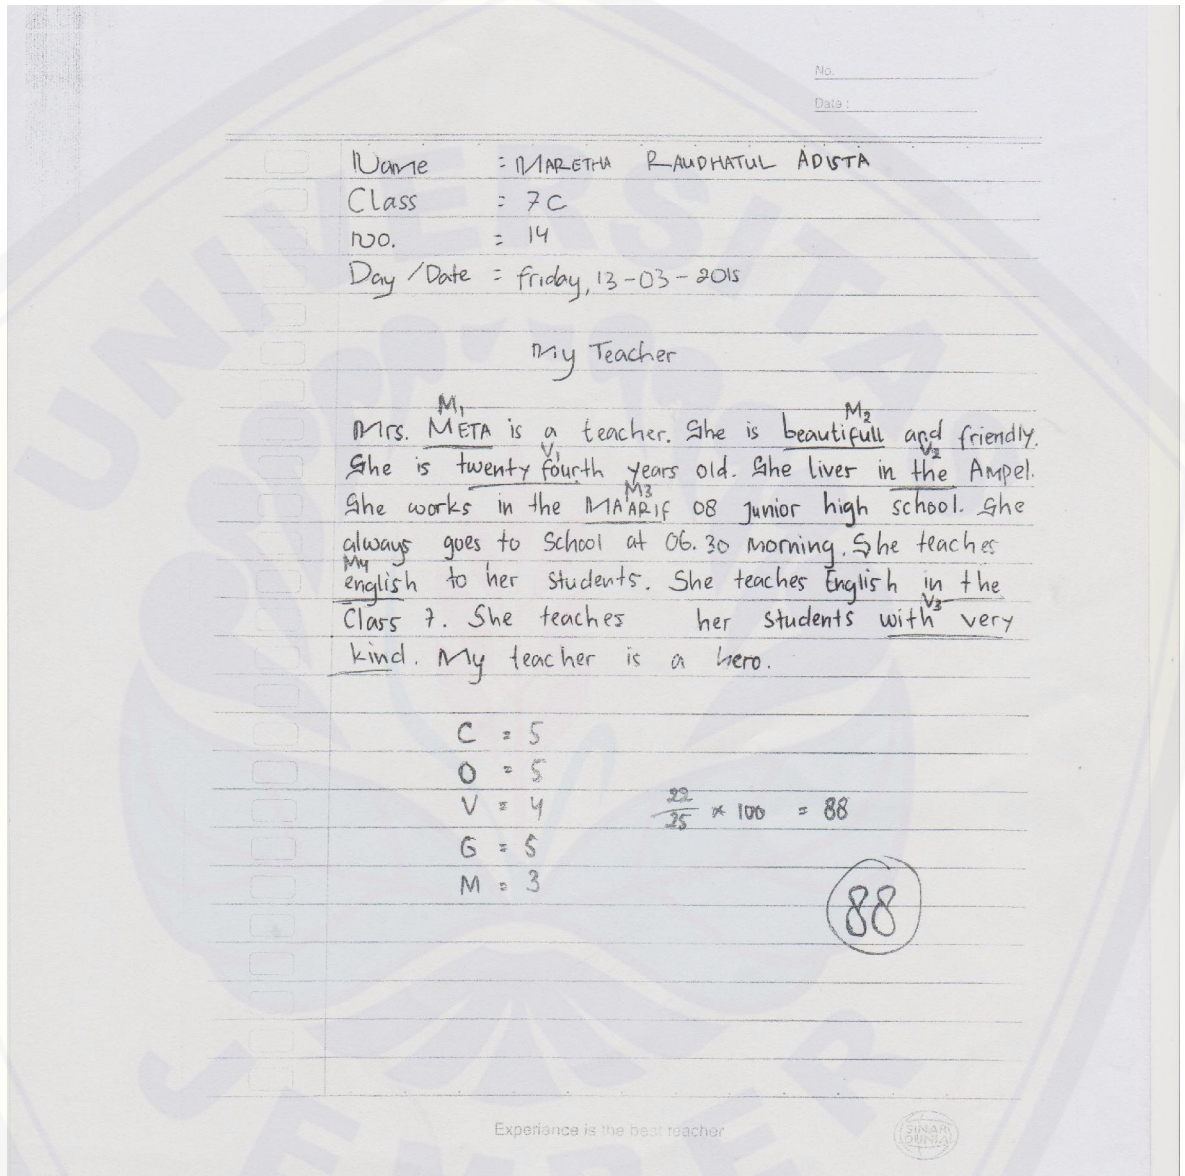 No.
Date :
Name : MARETHA RAUDHATUL ADISTA
Class : 7C
NO. : 14
Day /Date : friday, 13-03-2015
My Teacher
M1 M2
Mrs. META is a teacher. She is beautifull and friendly.
V1 V2
She is twenty fourth years old. She lives in the Ampel.
M3
She works in the MA'ARIF 08 junior high school. She
always goes to School at 06.30 Morning. She teaches
M4
english to her students. She teaches English in the
V3
Class 7. She teaches her students with very
kind. My teacher is a hero.
C = 5
O = 5
V = 4 22/25 × 100 = 88
G = 5
M = 3
88
Experience is the best teacher
SINAR DUNIA
UNIVERSITAS JEMBER